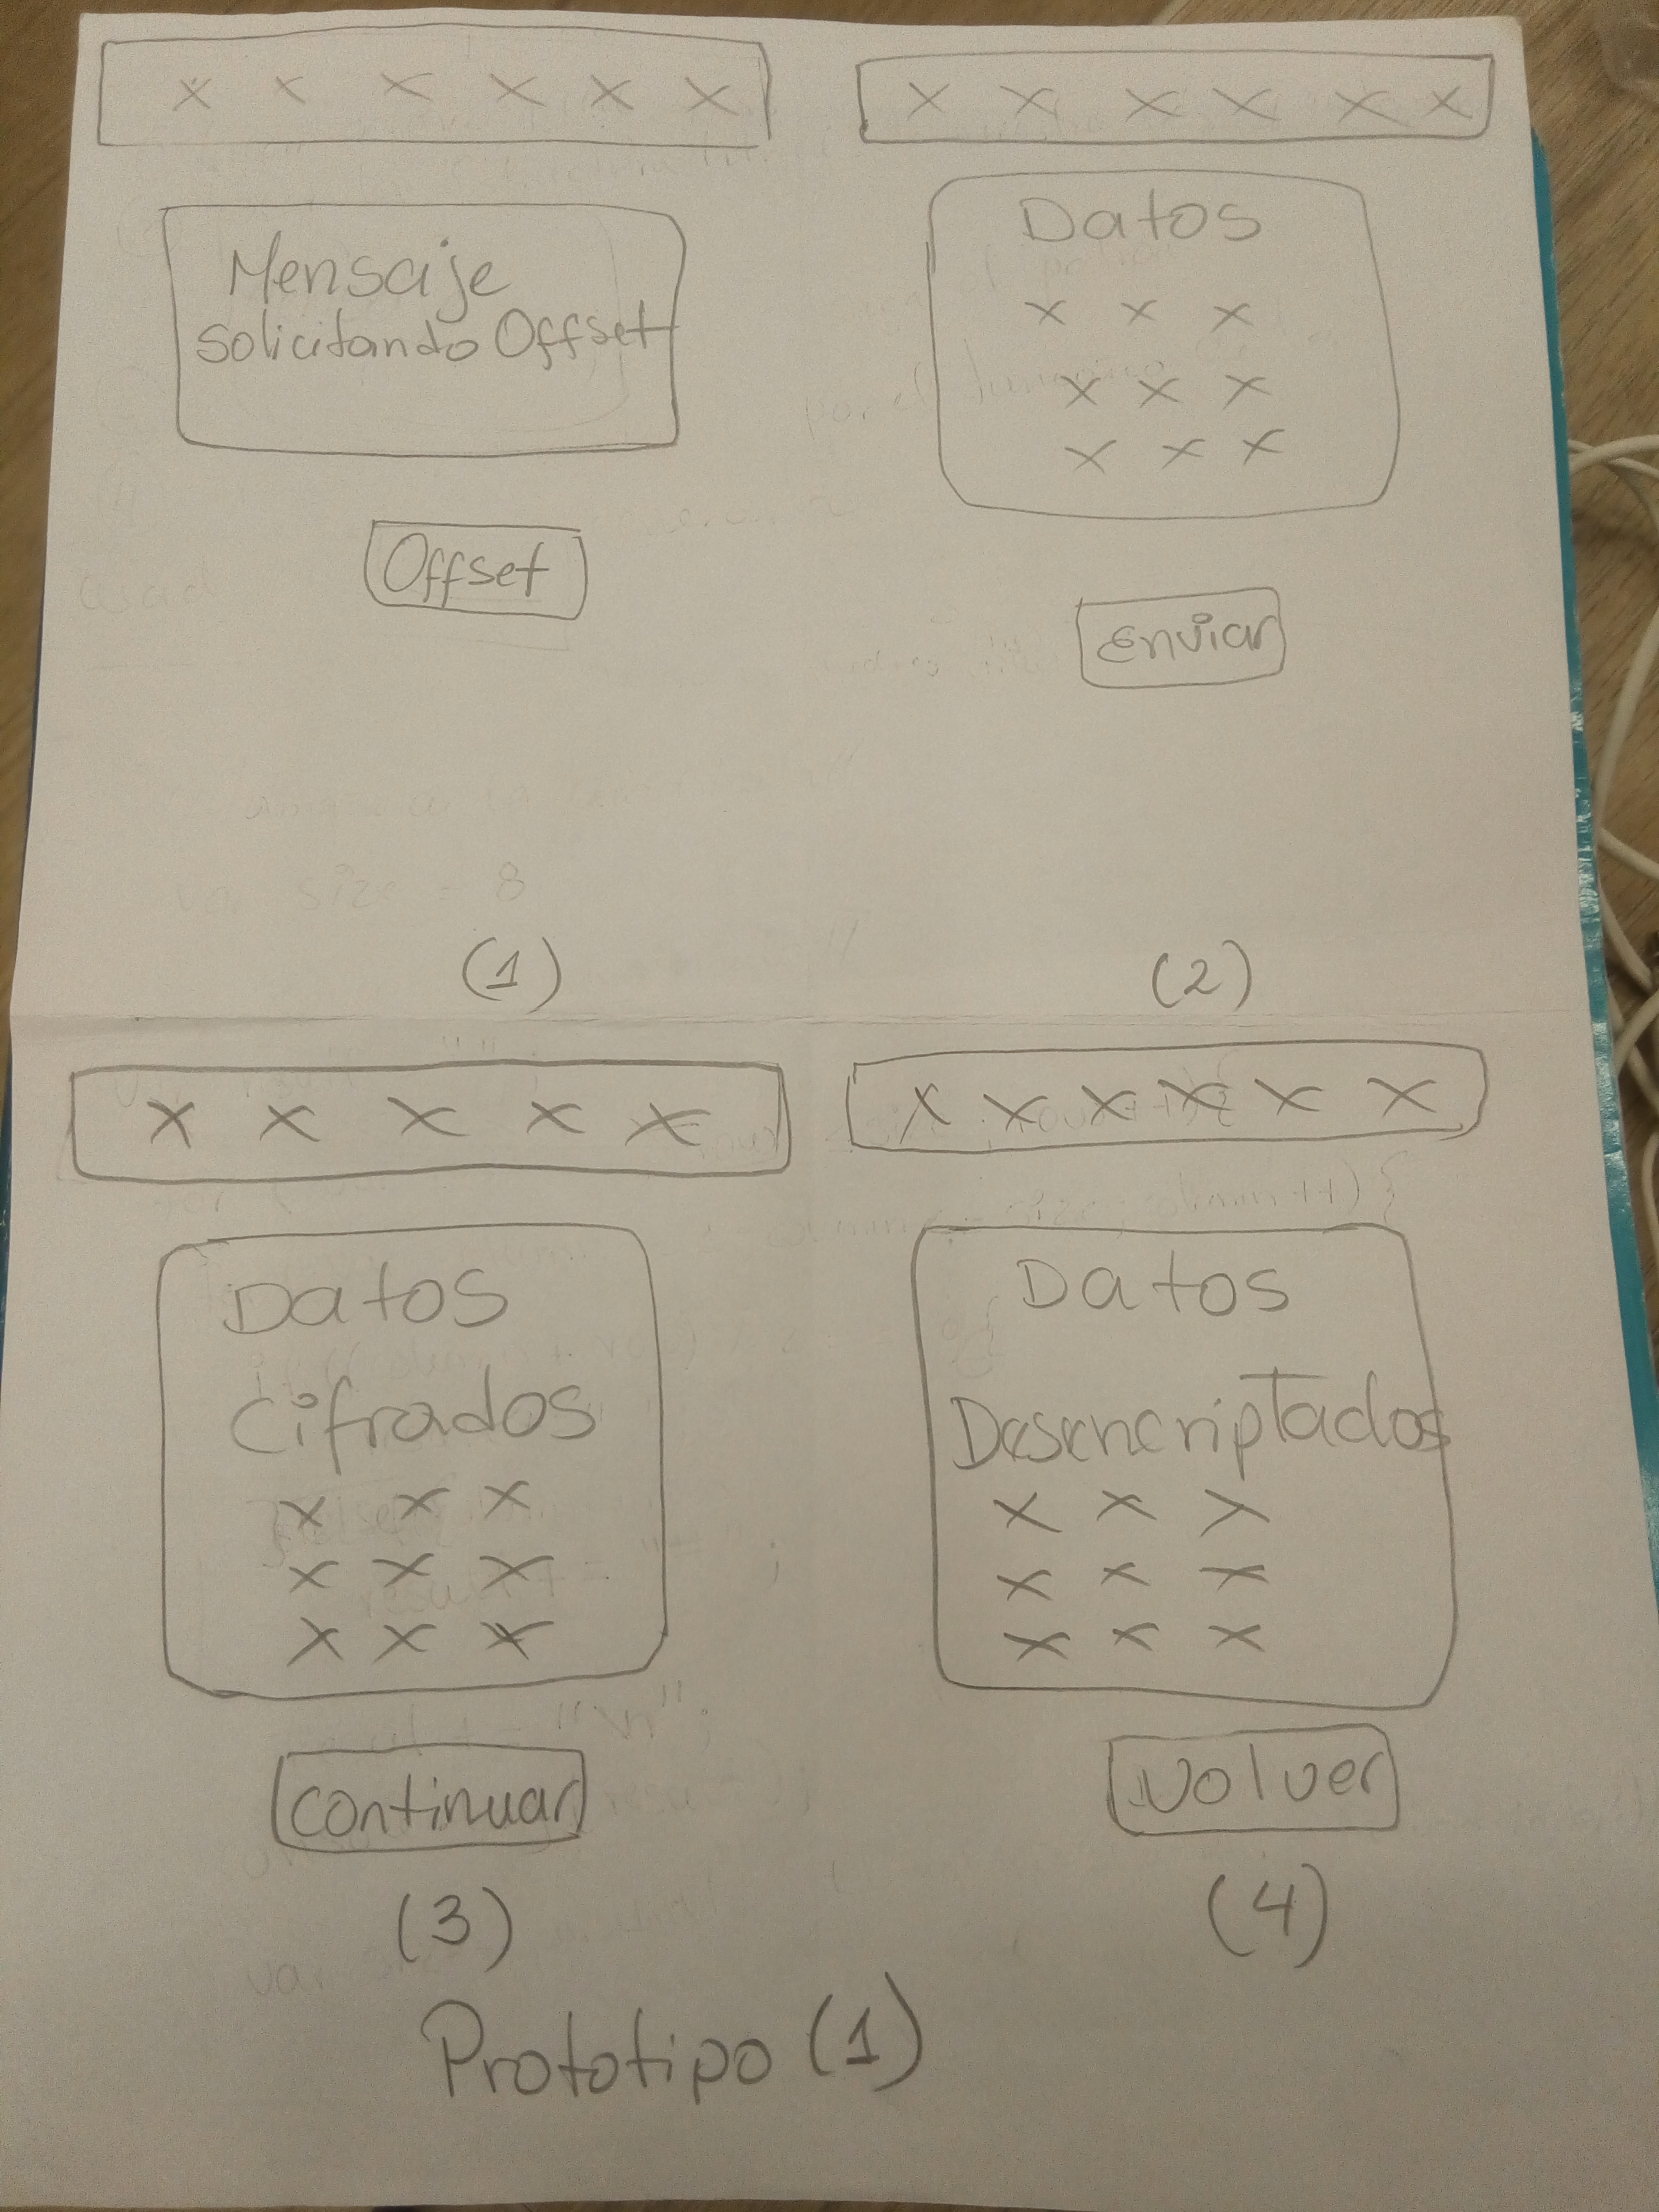 x x x x x x
Mensaje
solicitando Offset
Offset
(1)
x x x x x x
Datos
x x x
x x x
x x x
Enviar
(2)
x x x x x
Datos
Cifrados
x x x
x x x
x x x
continuar
(3)
x x x x x x
Datos
Desencriptados
x x x
x x x
x x x
Volver
(4)
Prototipo (1)
var size = 8